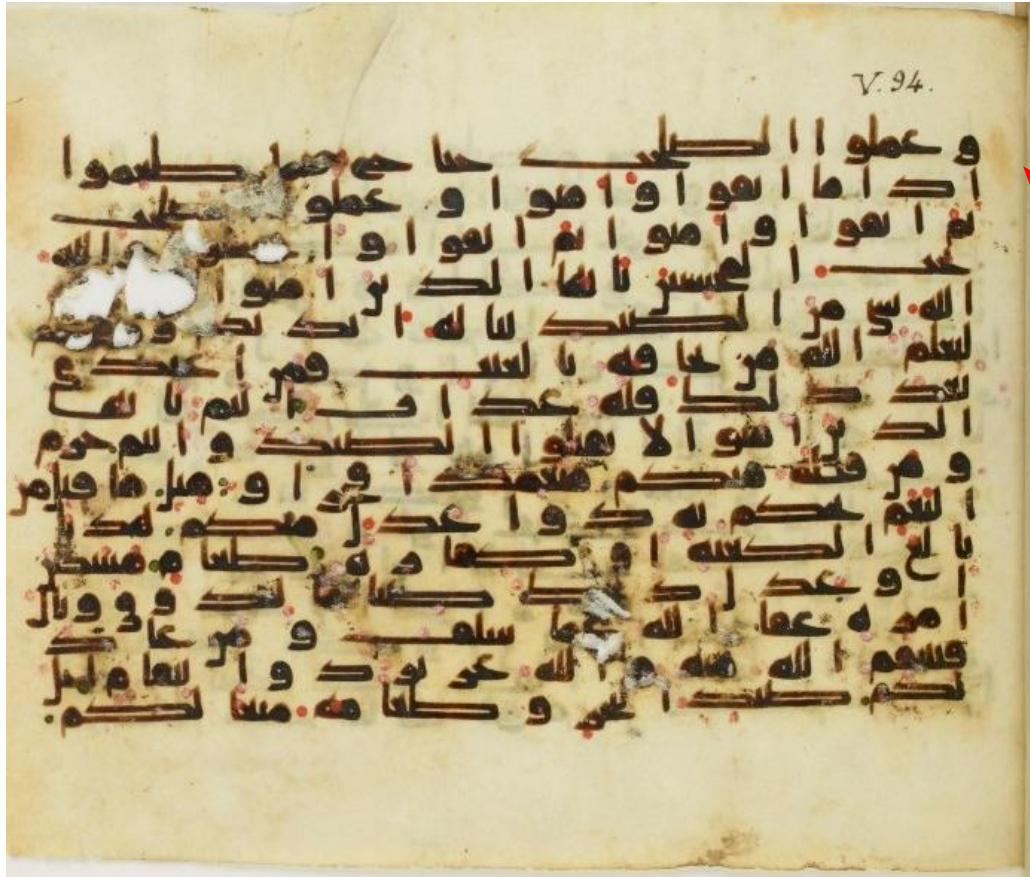 و عملوا الصلحت جناح فيما طعموا
اذا ما اتقوا و امنوا و عملوا الصلحت
ثم اتقوا و امنوا ثم اتقوا و احسنوا والله
يحب المحسنين يايها الذين امنوا
الله بشى من الصيد تناله ايديكم
ليعلم الله من يخافه بالغيب فمن اعتدى
بعد ذلك فله عذاب اليم يايها
الذين امنوا لا تقتلوا الصيد و انتم حرم
و من قتله منكم متعمدا فجزاو مثل ما قتل من
النعم يحكم به ذوا عدل منكم هديا
بلغ الكعبه او كفاره طعام مسكين
او عدل ذلك صياما ليذوق وبال
امره عفا الله عما سلف و من عاد
فينتقم الله منه و الله عزيز ذو انتقام احل
لكم صيد البحر و طعامه متاعا لكم
V. 94.